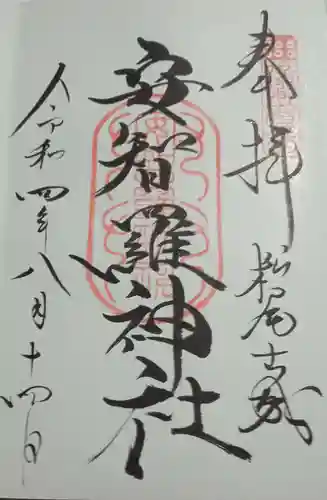 奉拝
松尾古城
安智羅神社
令和四年八月十四日